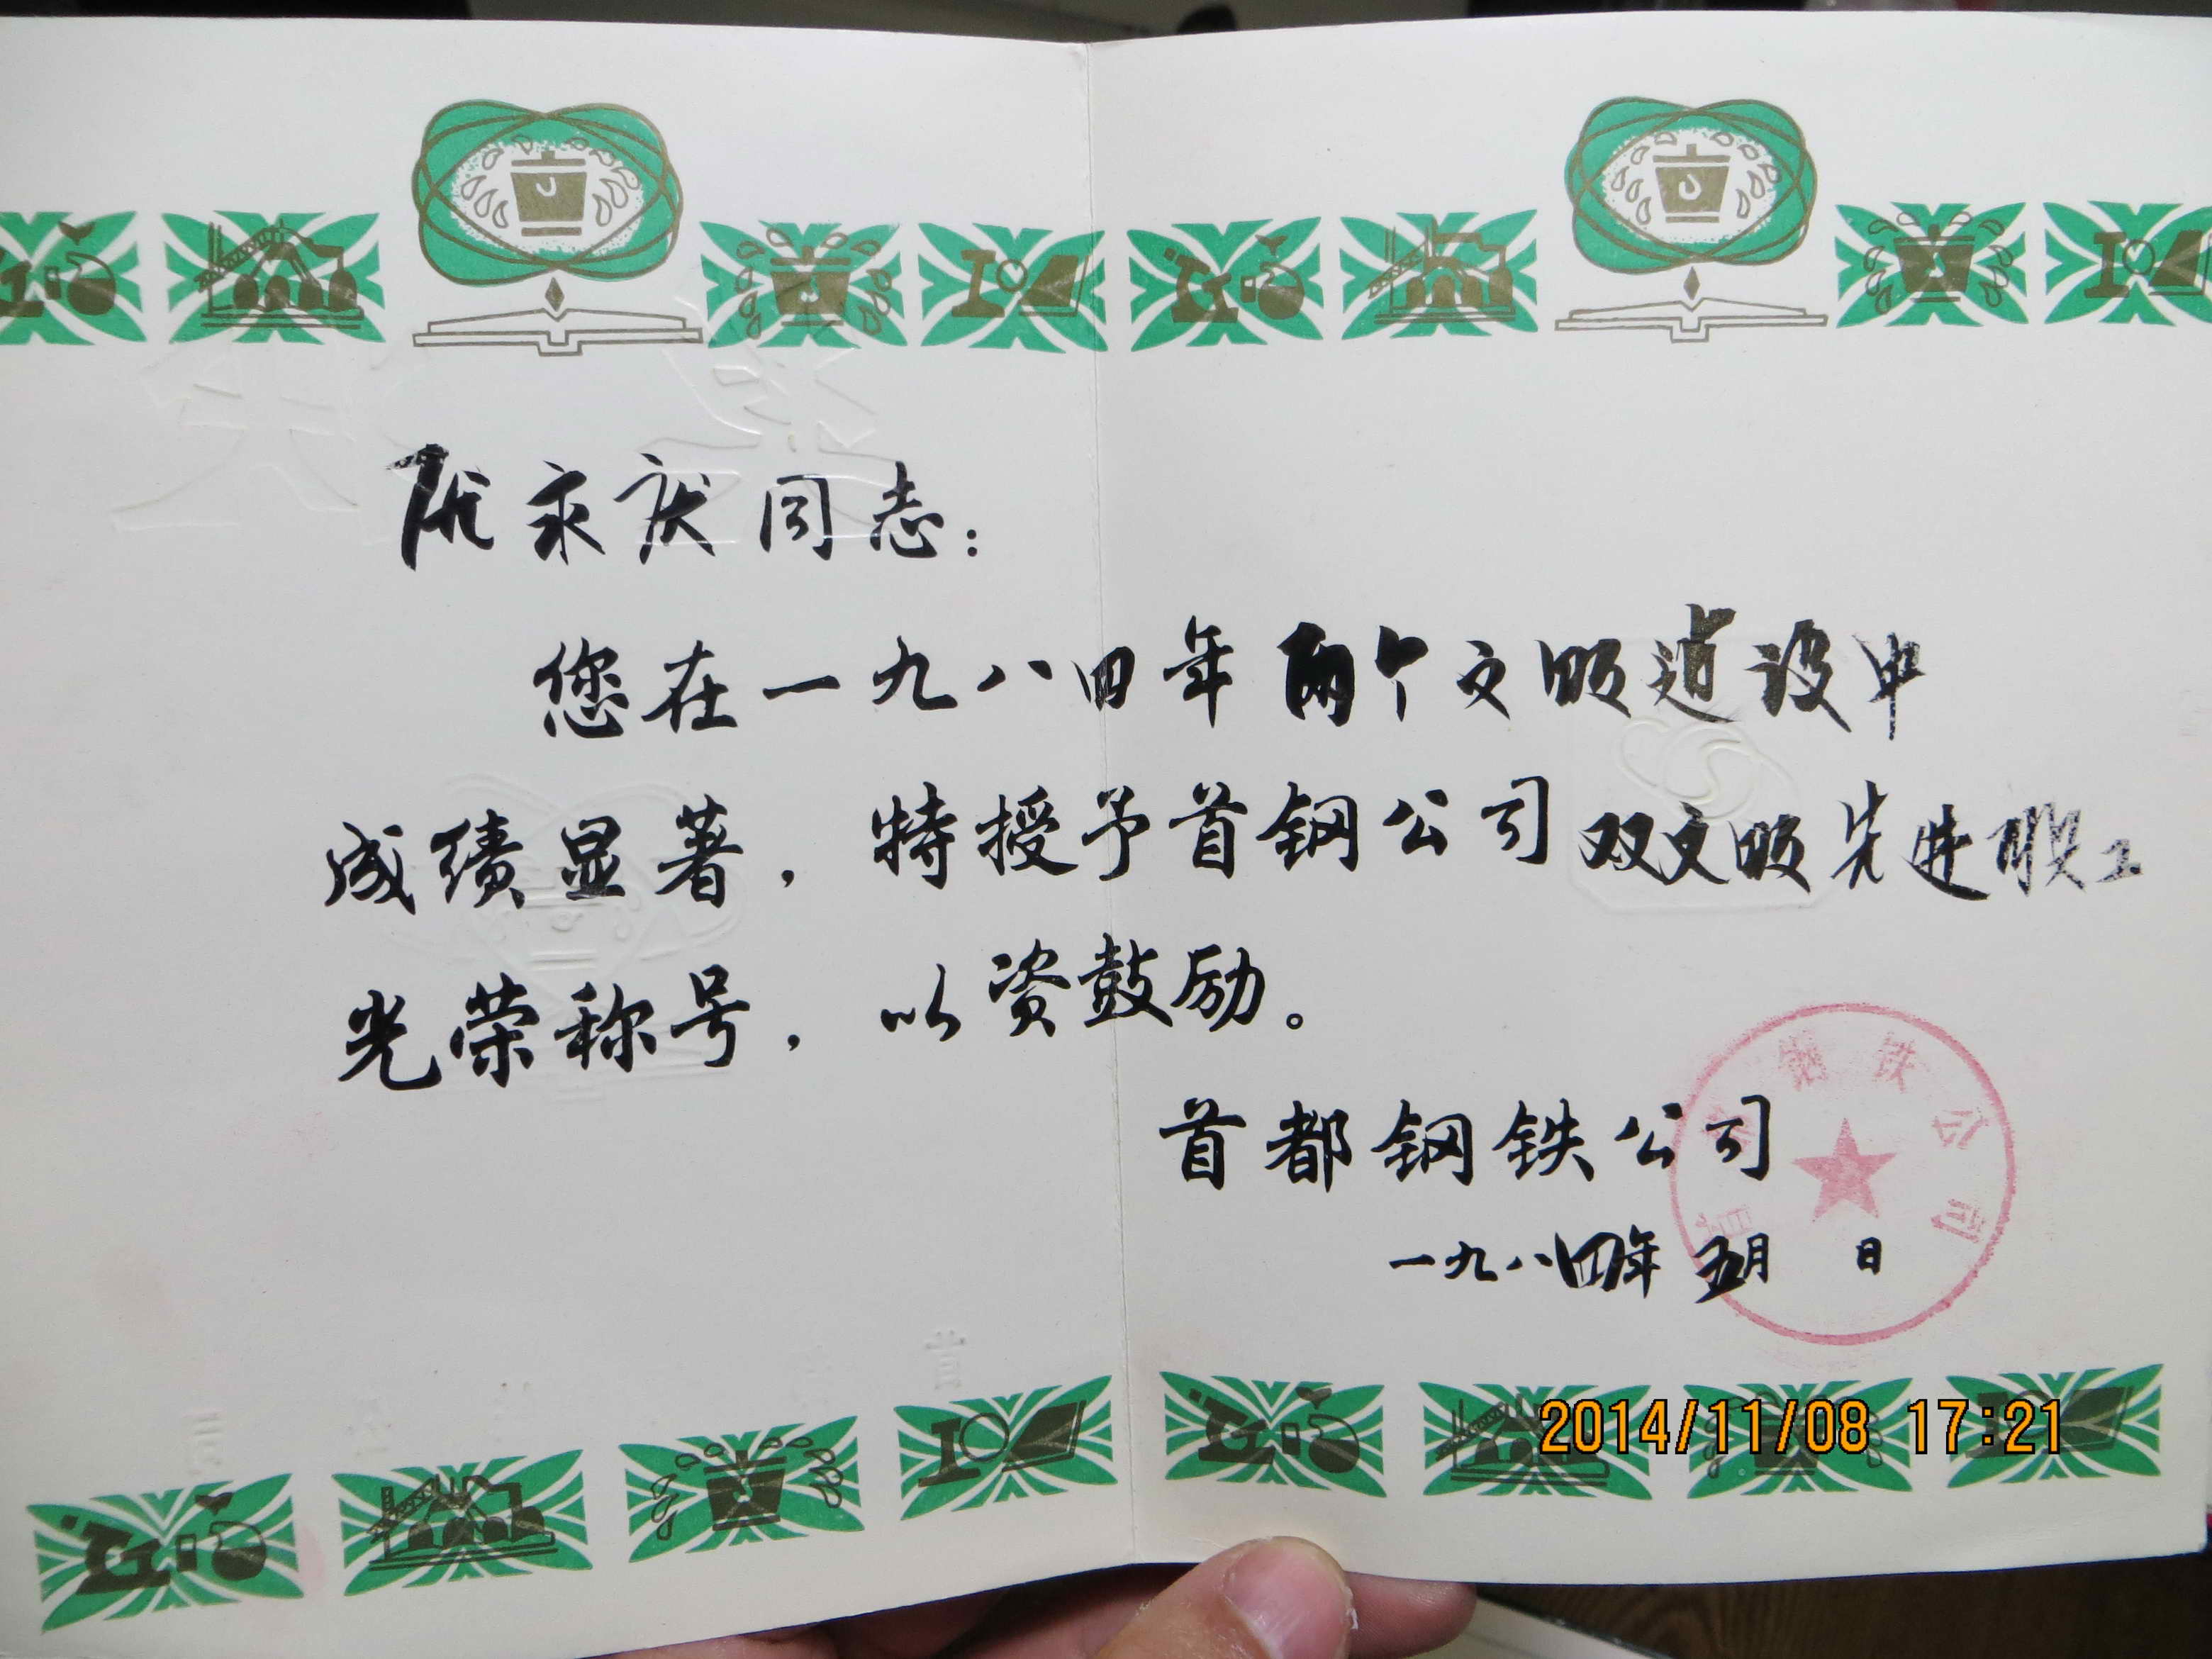 阮永庆同志：
您在一九八四年两个文明建设中
成绩显著，特授予首钢公司双文明先进职工
光荣称号，以资鼓励。
首都钢铁公司
一九八四年五月 日
首都钢铁公司
2014/11/08 17:21